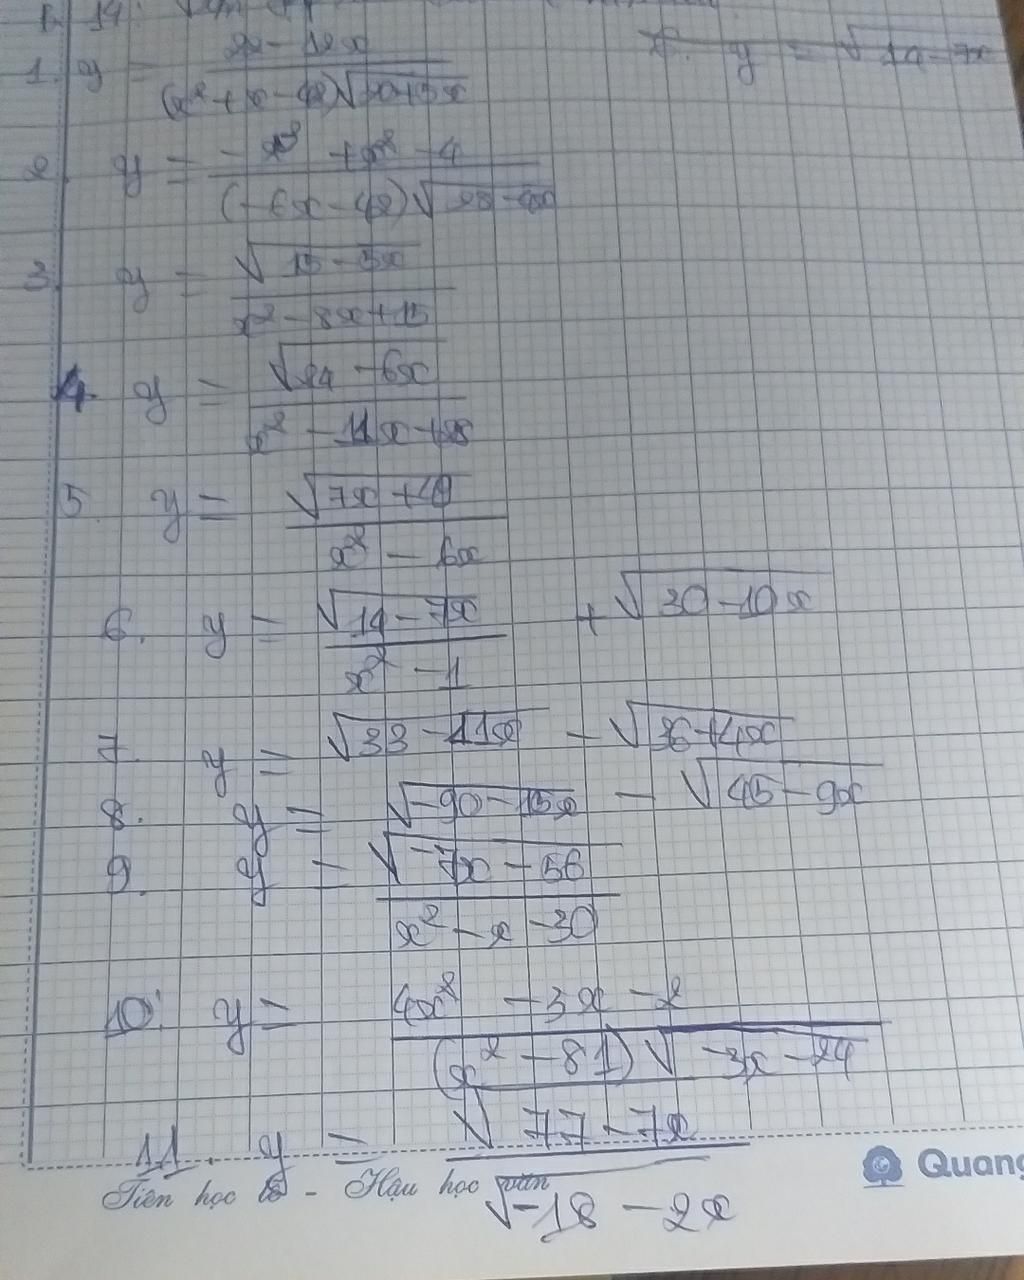 1. y =
2. y = (-x³ + x² - 4) / ((-6x - 42)√(28 - 4x))
3. y = √(15 - 3x) / (x² - 8x + 15)
4. y = √(24 - 6x) / (x² - 11x + 28)
5. y = √(7x + 49) / (x² - 6x)
6. y = √(14 - 7x) / (x² - 1) + √(30 - 10x)
7. y = √(33 - 11x) - √(36 + 4x)
8. y = √(-90 - 15x) - √(45 - 9x)
9. y = √(-7x - 56) / (x² - x - 30)
10. y = (4x² - 3x - 2) / ((x² - 81)√(-3x - 24))
11. y = √(77 - 7x) / √(-18 - 2x)
Tiên học lễ - Hậu học văn
Quang